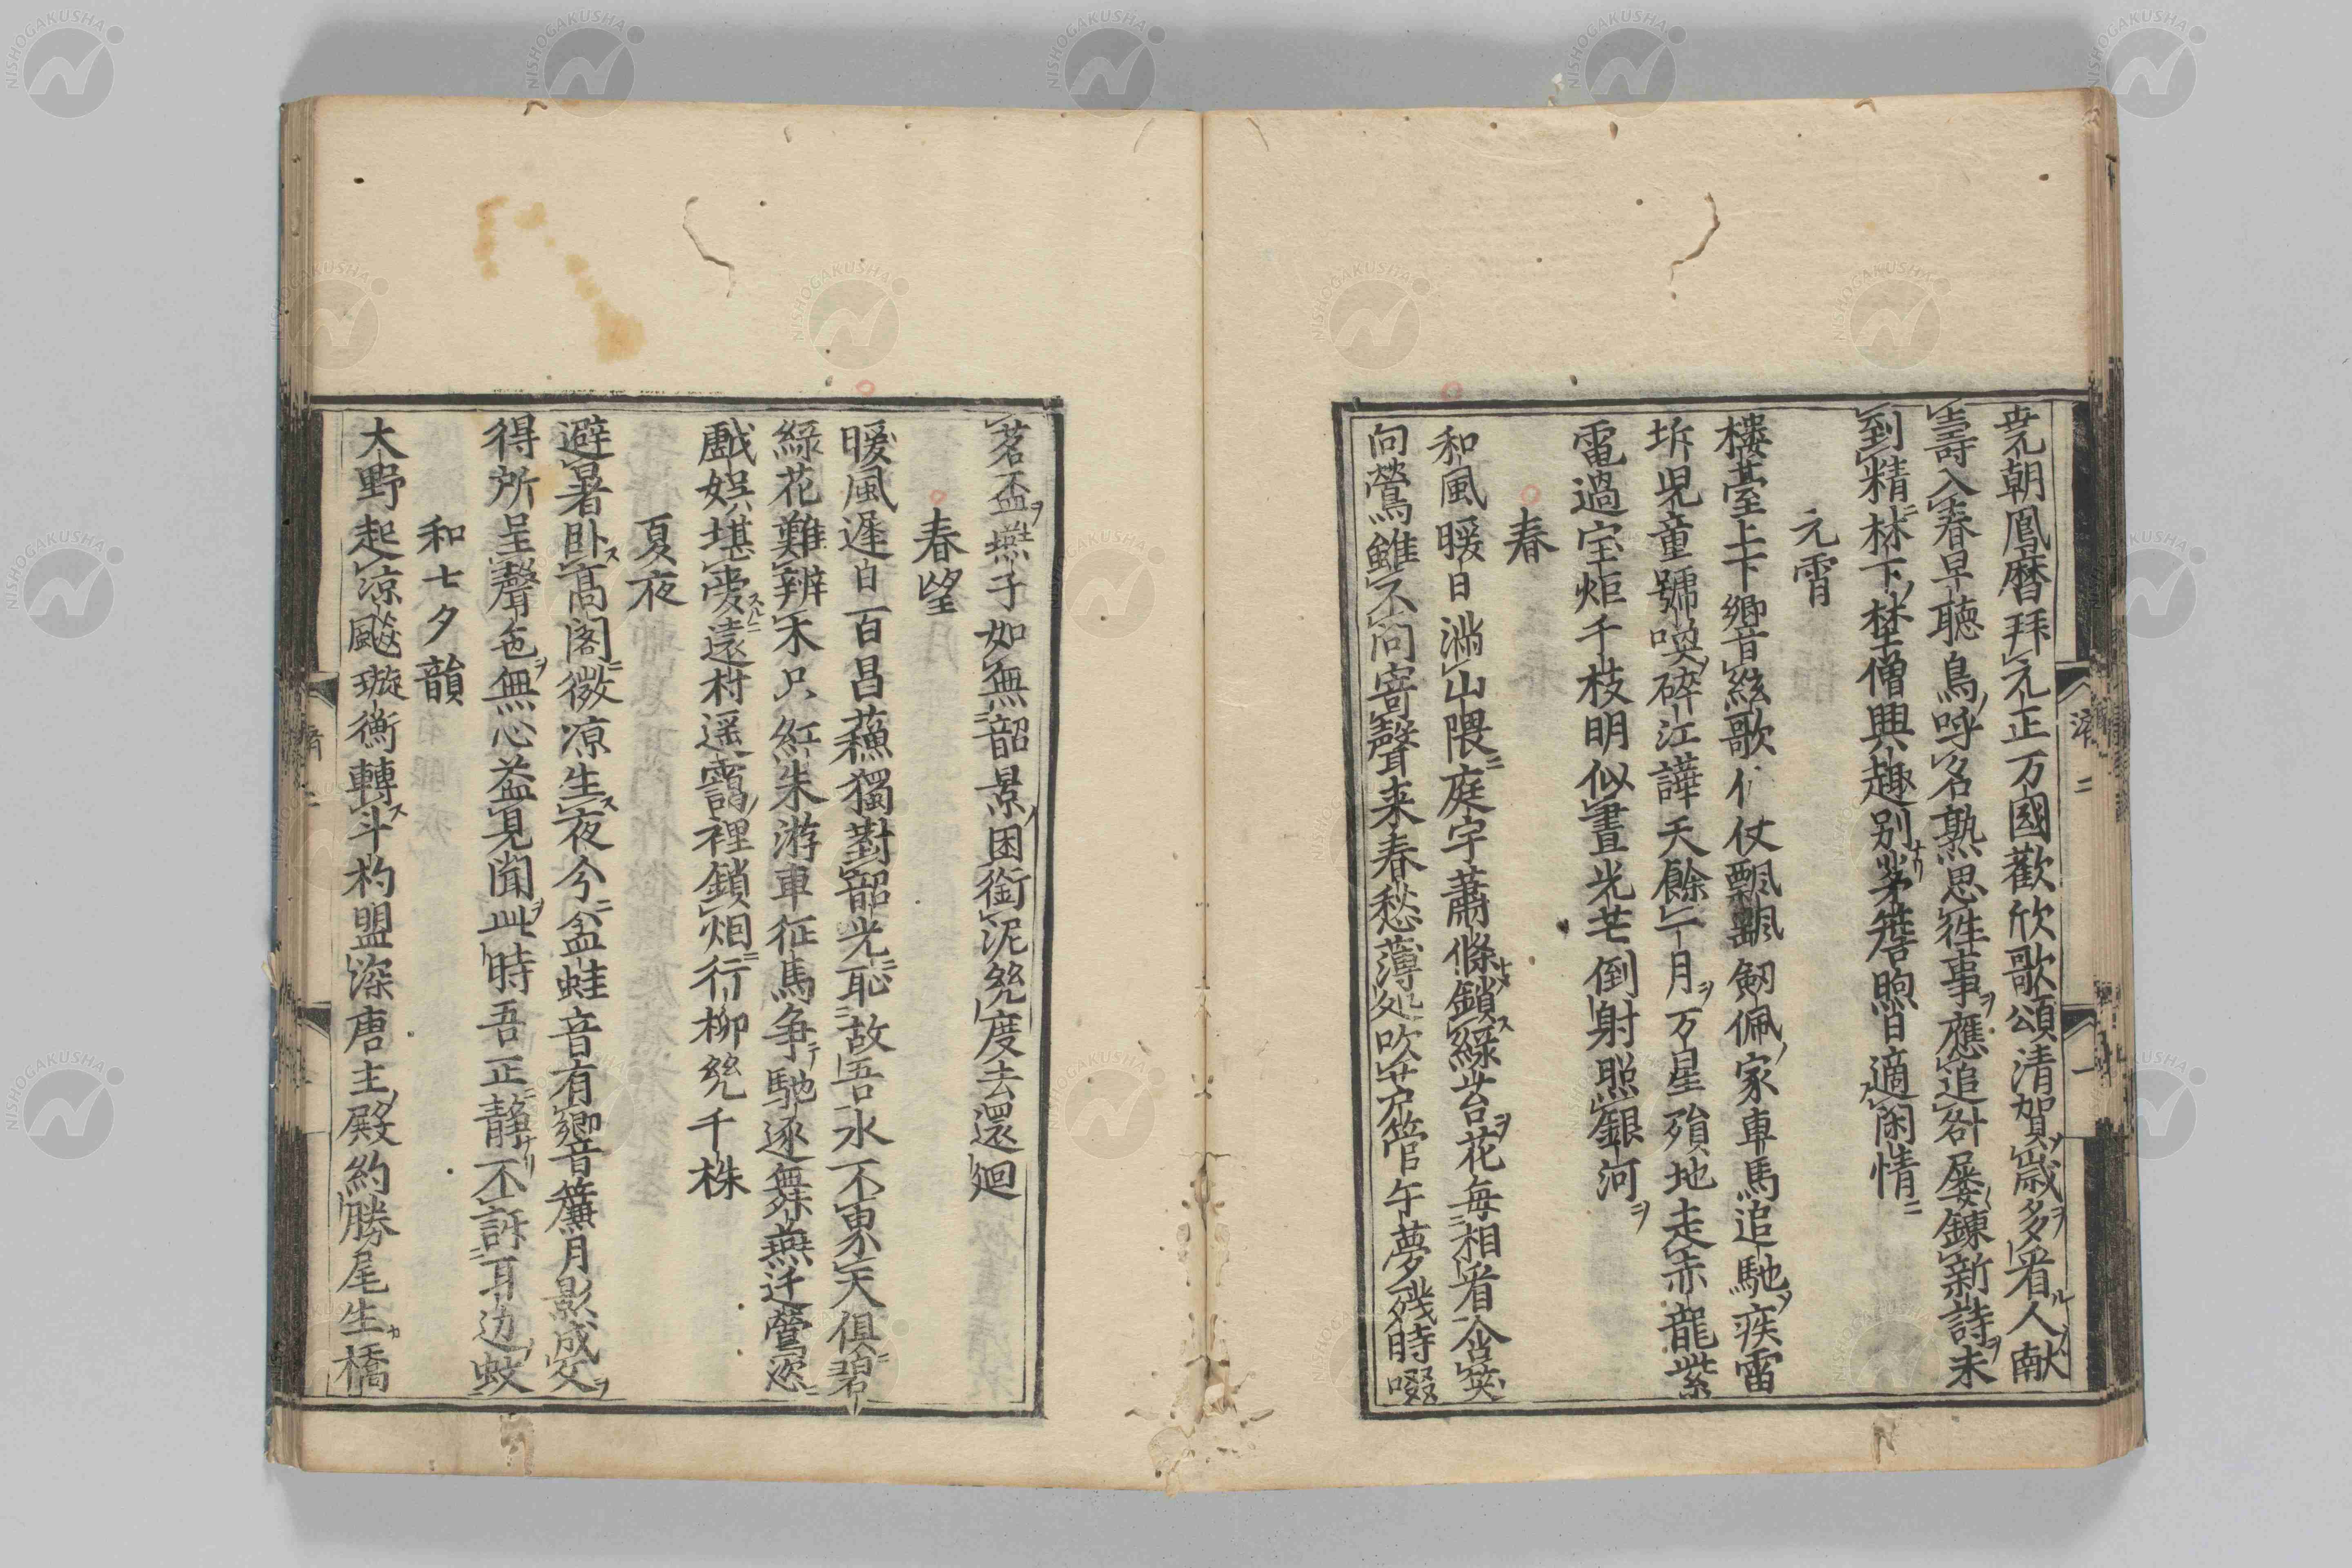 堯朝鳳暦拜元正万國歡欣歌頌清賀歳多看人献
壽入春早聽鳥呼名熟思徃事應追咎屡鍊新詩未
到精林下埜僧興趣別茅簷煦日適閑情
元宵
樓臺上下響絃歌仗飄飄劔佩家車馬追馳疾雷
坼児童號喚碎江譁天餘一月万星殞地走赤龍紫
電過宝炬千枝明似晝光芒倒射照銀河
春
和風暖日満山隈庭宇蕭條鎖緑苔花毎相看含笑
向鶯雖不問寄聲来春愁薄処吹芦管午夢残時啜
茗盃燕子如無韶景困銜泥幾度去還廻
春望
暖風遲日百昌蘓獨對韶光恥故吾水不東天倶碧
緑花難辨木只紅朱游車征馬争馳逐舞燕迁鶯恣
戯娯堪愛遠村遥靄裡鎖烟行柳幾千株
夏夜
避暑卧高閣微凉生夜今盆蛙音有響簾月影成文
得所呈聲色無心益見聞此時吾正静不訴耳边蚊
和七夕韻
大野起凉飈璇衡轉斗杓盟深唐主殿約勝尾生橋